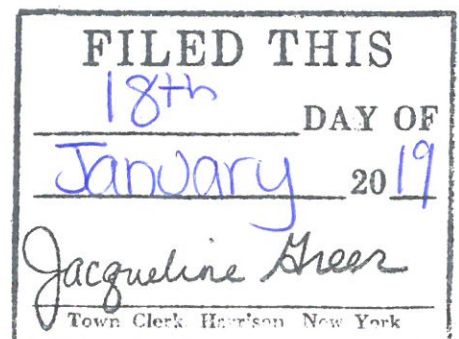 FILED THIS
18th DAY OF
January 2019
Jacqueline Greer
Town Clerk Harrison New York